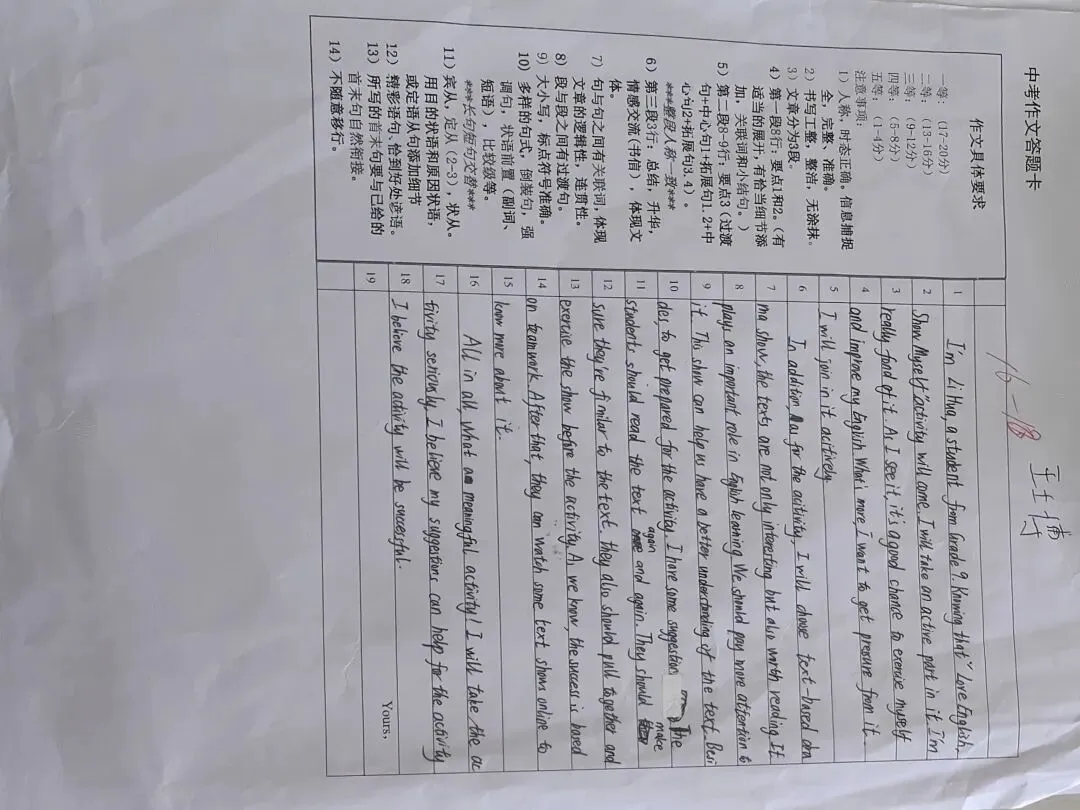 中考作文答题卡
王士博
16-18
作文具体要求
一等:(17-20分)
二等:(13-16分)
三等:(9-12分)
四等:(5-8分)
五等:(1-4分)
注意事项:
1)人称、时态正确。信息捕捉
全,完整、准确。
2)书写工整,整洁,无涂抹。
3)文章分为3段。
4)第一段8行:要点1和2。(有
适当的展开,有恰当细节添
加,关联词和小结句。)
5)第二段8-9行:要点3(过渡
句+中心句1+拓展句1.2+中
心句2+拓展句3.4)。
***整段人称一致***
6)第三段3行:总结,升华,
情感交流(书信),体现文
体。
7)句与句之间有关联词,体现
文章的逻辑性,连贯性。
8)段与段之间有过渡句。
9)大小写,标点符号准确。
10)多样的句式,倒装句,强
调句,状语前置(副词、
短语),比较级等。
***长句短句交替***
11)宾从,定从(2-3),状从。
用目的状语和原因状语,
或定语从句添加细节
12)精彩语句、恰到好处谚语。
13)所写的首末句要与已给的
首末句自然衔接。
14)不随意移行。
1 I'm Li Hua, a student from Grade 9. Knowing that "Love English,
2 Show Myself" activity will come. I will take an active part in it. I'm
3 really fond of it. As I see it, it's a good chance to exercise myself
4 and improve my English. What's more, I want to get pressure from it.
5 I will join in it acitively.
6 In addition, as for the acitivity, I will choose text-based dra
7 ma show, the texts are not only interesting but also worth reading. It
8 plays an important role in English learning. We should pay more attention to
9 it. This show can help us have a better understanding of the text. Besi
10 des, to get prepared for the activity. I have some suggestion The
11 students should read the text again and again. They should make
12 sure they're fimilar to the text. they also should pull together and
13 exercise the show before the activity. As we know, the success is based
14 on teamwork. After that, they can watch some text shows online to
15 know more about it.
16 All in all, what a meaningful activity! I will take the ac
17 tivity seriously. I believe my suggestions can help for the activity
18 I believe the activity will be successful.
19 Yours,